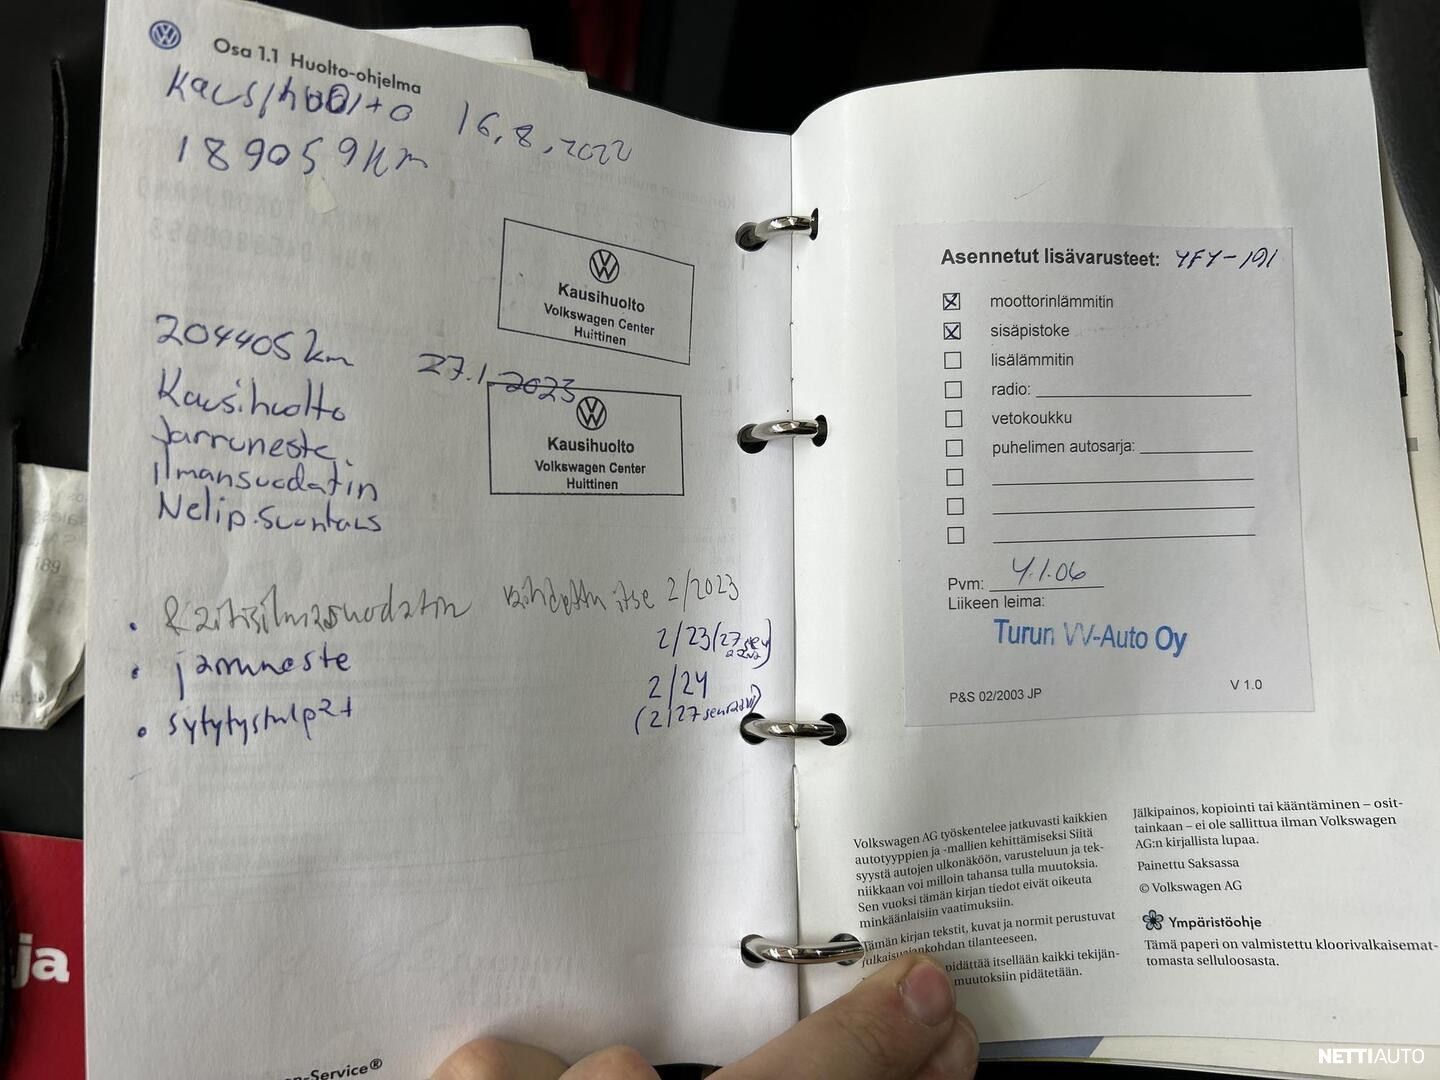 Osa 1.1 Huolto-ohjelma
Kausihuolto 16.8.2022
189059 km
Kausihuolto
Volkswagen Center
Huittinen
204405 km 27.1.2023
Kausihuolto
Jarruneste.
Ilmansuodatin
Nelip.suuntaus
Kausihuolto
Volkswagen Center
Huittinen
• Raitisilmasuodatin vaihdettu itse 2/2023
• jarruneste 2/23 (27
• sytytystulpat 2/24
(2/27 seuraava)
n-Service®
Asennetut lisävarusteet: YFY-191
moottorinlämmitin
sisäpistoke
lisälämmitin
radio:
vetokoukku
puhelimen autosarja:
Pvm: 4.1.06
Liikeen leima:
Turun VV-Auto Oy
P&S 02/2003 JP V 1.0
Volkswagen AG työskentelee jatkuvasti kaikkien
autotyyppien ja -mallien kehittämiseksi Siitä
syystä autojen ulkonäköön, varusteluun ja tek-
niikkaan voi milloin tahansa tulla muutoksia.
Sen vuoksi tämän kirjan tiedot eivät oikeuta
minkäänlaisiin vaatimuksiin.
Tämän kirjan tekstit, kuvat ja normit perustuvat
julkaisuajankohdan tilanteeseen.
pidättää itsellään kaikki tekijän-
muutoksiin pidätetään.
Jälkipainos, kopiointi tai kääntäminen – osit-
tainkaan – ei ole sallittua ilman Volkswagen
AG:n kirjallista lupaa.
Painettu Saksassa
© Volkswagen AG
Ympäristöohje
Tämä paperi on valmistettu kloorivalkaisemat-
tomasta selluloosasta.
ja
NETTIAUTO